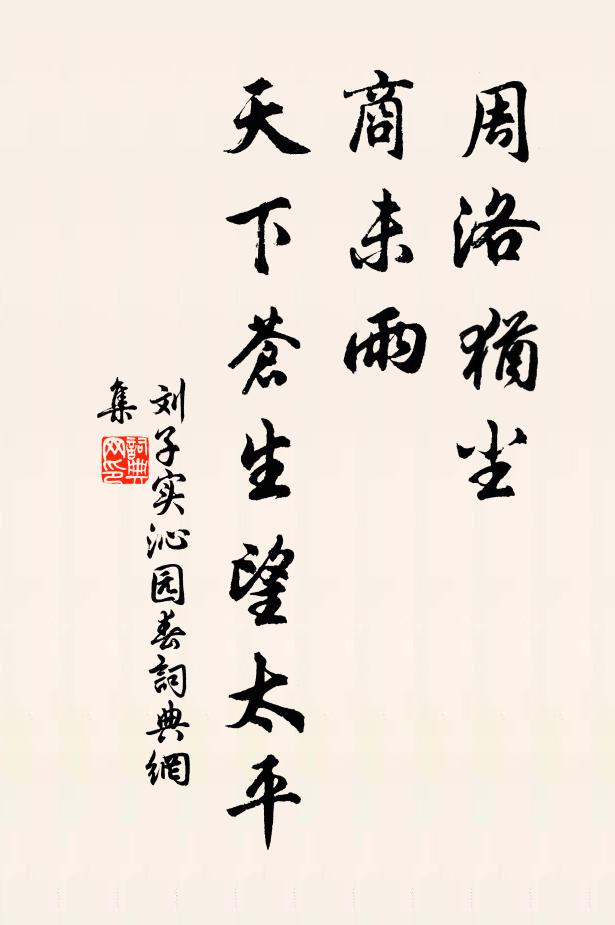 周洛猶尘
商未雨
天下蒼生望太平
刘子实沁园春詞典網
集
詞典
网印